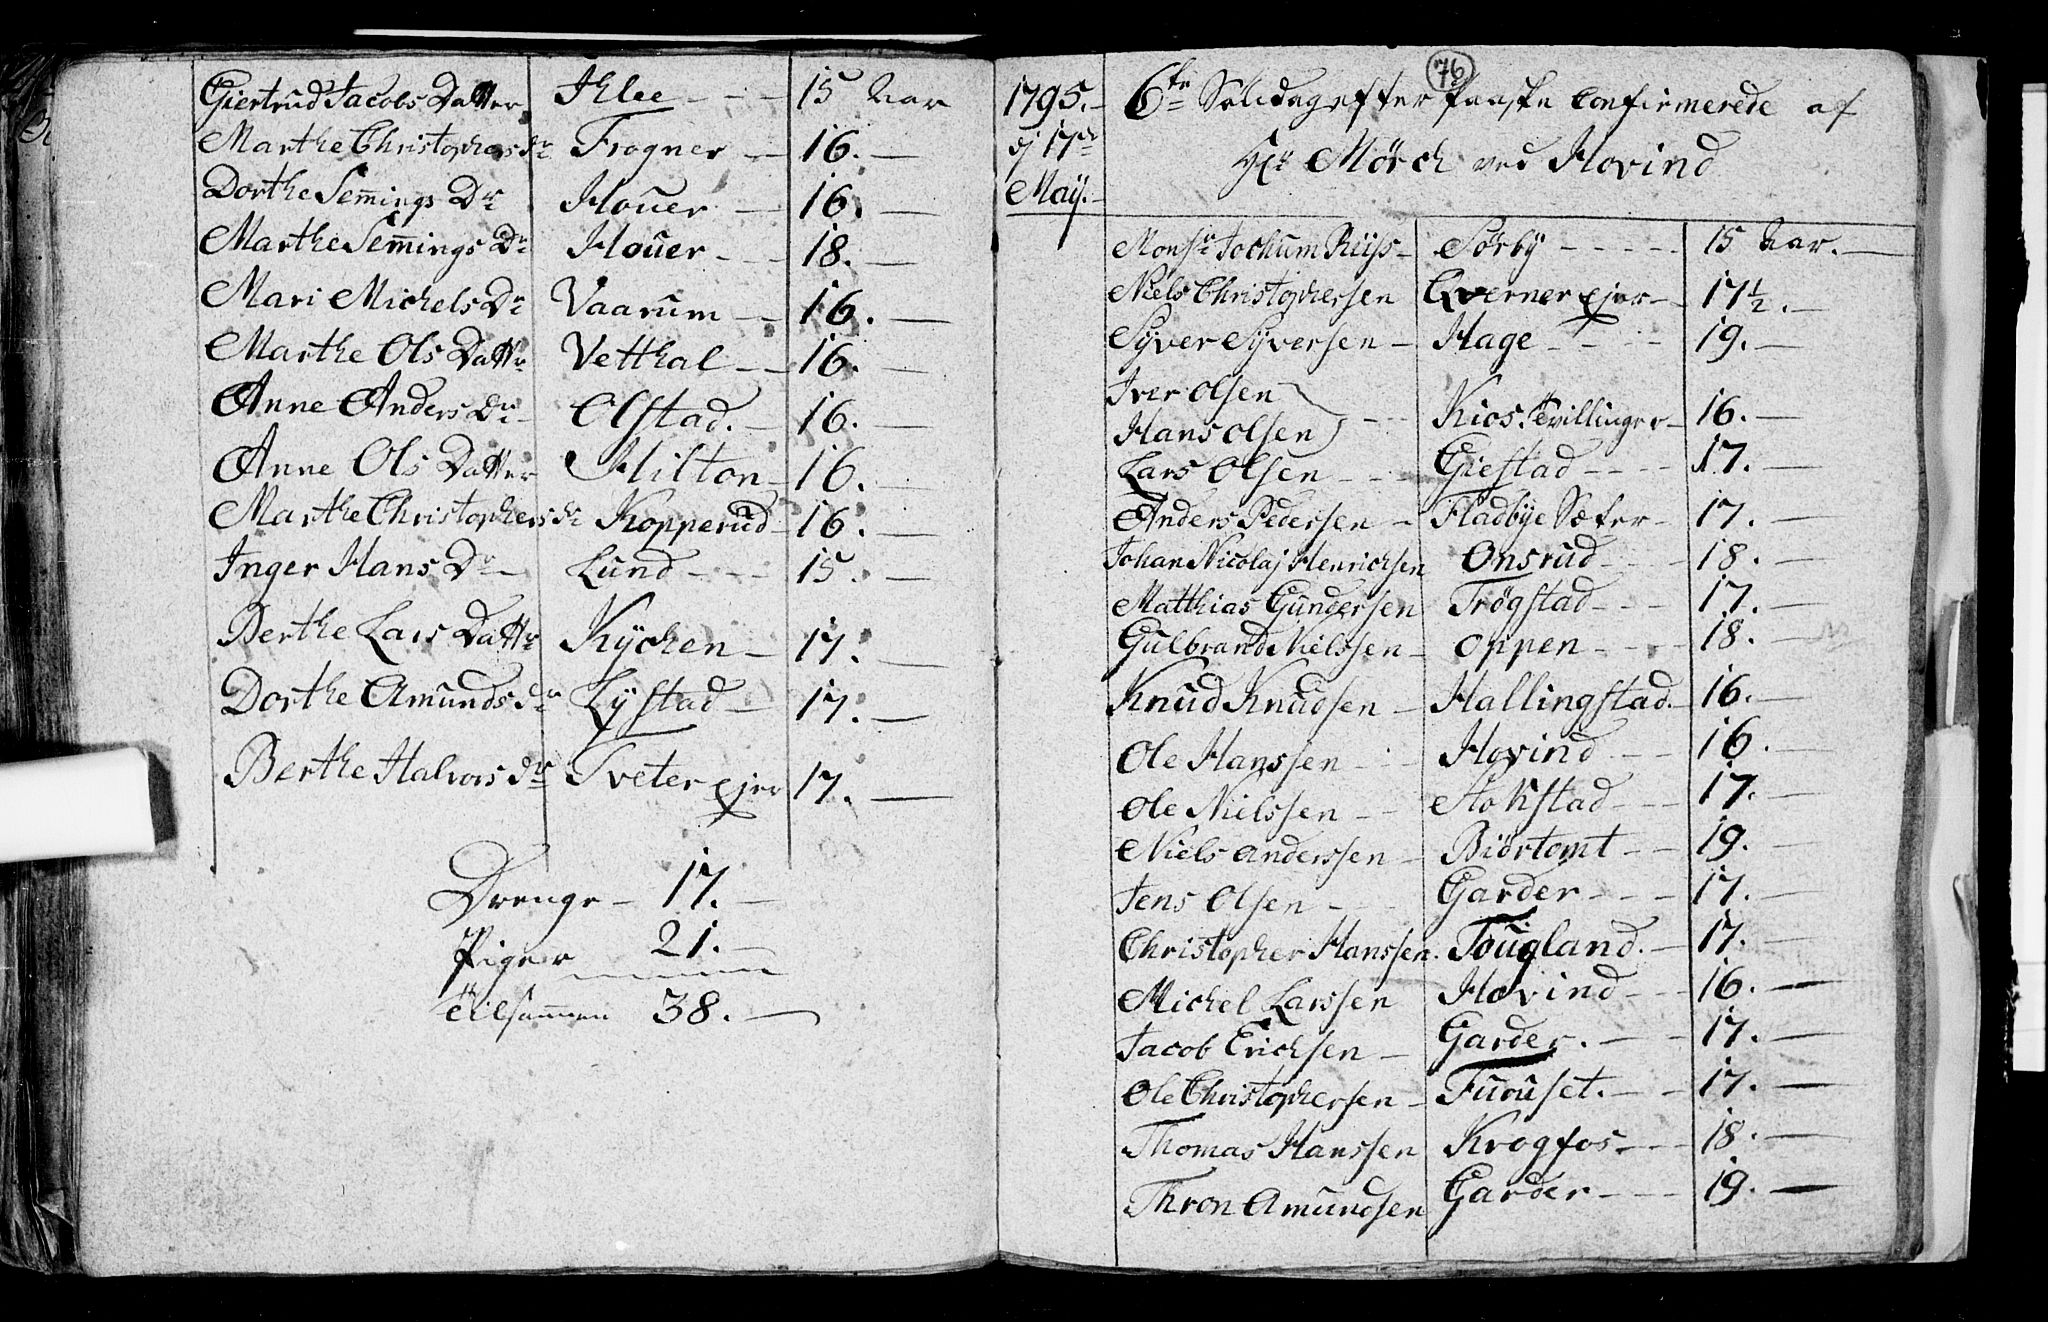 Giertrud Jacobs Datter Klee - - - 15 Aar
Marthe Christophers dr Frogner - 16. -
Dorthe Semings Dr Houer - 16. -
Marthe Semings Dr Houer - - 18. -
Mari Michels Dr Vaarum - - 16. -
Marthe Ols Dattr Vetthal - - 16. -
Anne Anders Dr Olstad. - 16. -
Anne Ols Datter Milton - 16. -
Marthe Christophers dr Kopperud - 16. -
Inger Hans Dr - Lund - - - 15. -
Berthe Lars Dattr Kÿchen - 17. -
Dorthe Amunds dr Lÿstad - 17. -
Berthe Halvors dr Tveter ejer 17. -
Drenge - 17. -
Piger 21. -
tilsammen 38. -
76
1795. - 6te Søndag efter Paaske Confirmerede af
dj 17de Hr Mörch ved Hovind
Maÿ. -
Monsr Jochum Rüss - Sörbÿ - - - - 15 Aar. -
Niels Christophersen Qverner ejer - 17½. -
Sÿver Sÿversen - Hage - - - - 19. -
Iver Olsen
Hans Olsen - - Kios tvillinger - 16. -
Lars Olsen - - - Giestad - - - - 17. -
Anders Pedersen - Fladbye Sæter - 17. -
Johan Nicolaj Henrichsen Onsrud - - - 18. -
Matthias Gundersen Trögstad - - - 17. -
Gulbrand Nielssen - Oppen - - - - 18. -
Knud Knudsen - Hallingstad. - 16. -
Ole Hanssen - - Hovind - - - 16. -
Ole Nielssen - - Stokstad - - - 17. -
Niels Anderssen - Biörtomt - - 19. -
Jens Olsen - - - Garder - - - 17. -
Christopher Hanssen. Tougland. - 17. -
Michel Larssen Hovind - - - 16. -
Jacob Erichsen - Garder. - - - 17. -
Ole Christophersen - Furuset. - - - 17. -
Thomas Hanssen Krogfos - - - 18. -
Thron Amundsen Garder - - - 19. -